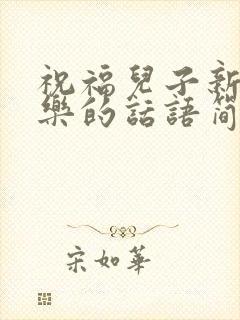 祝福兒子新
樂的話語简
宋如華